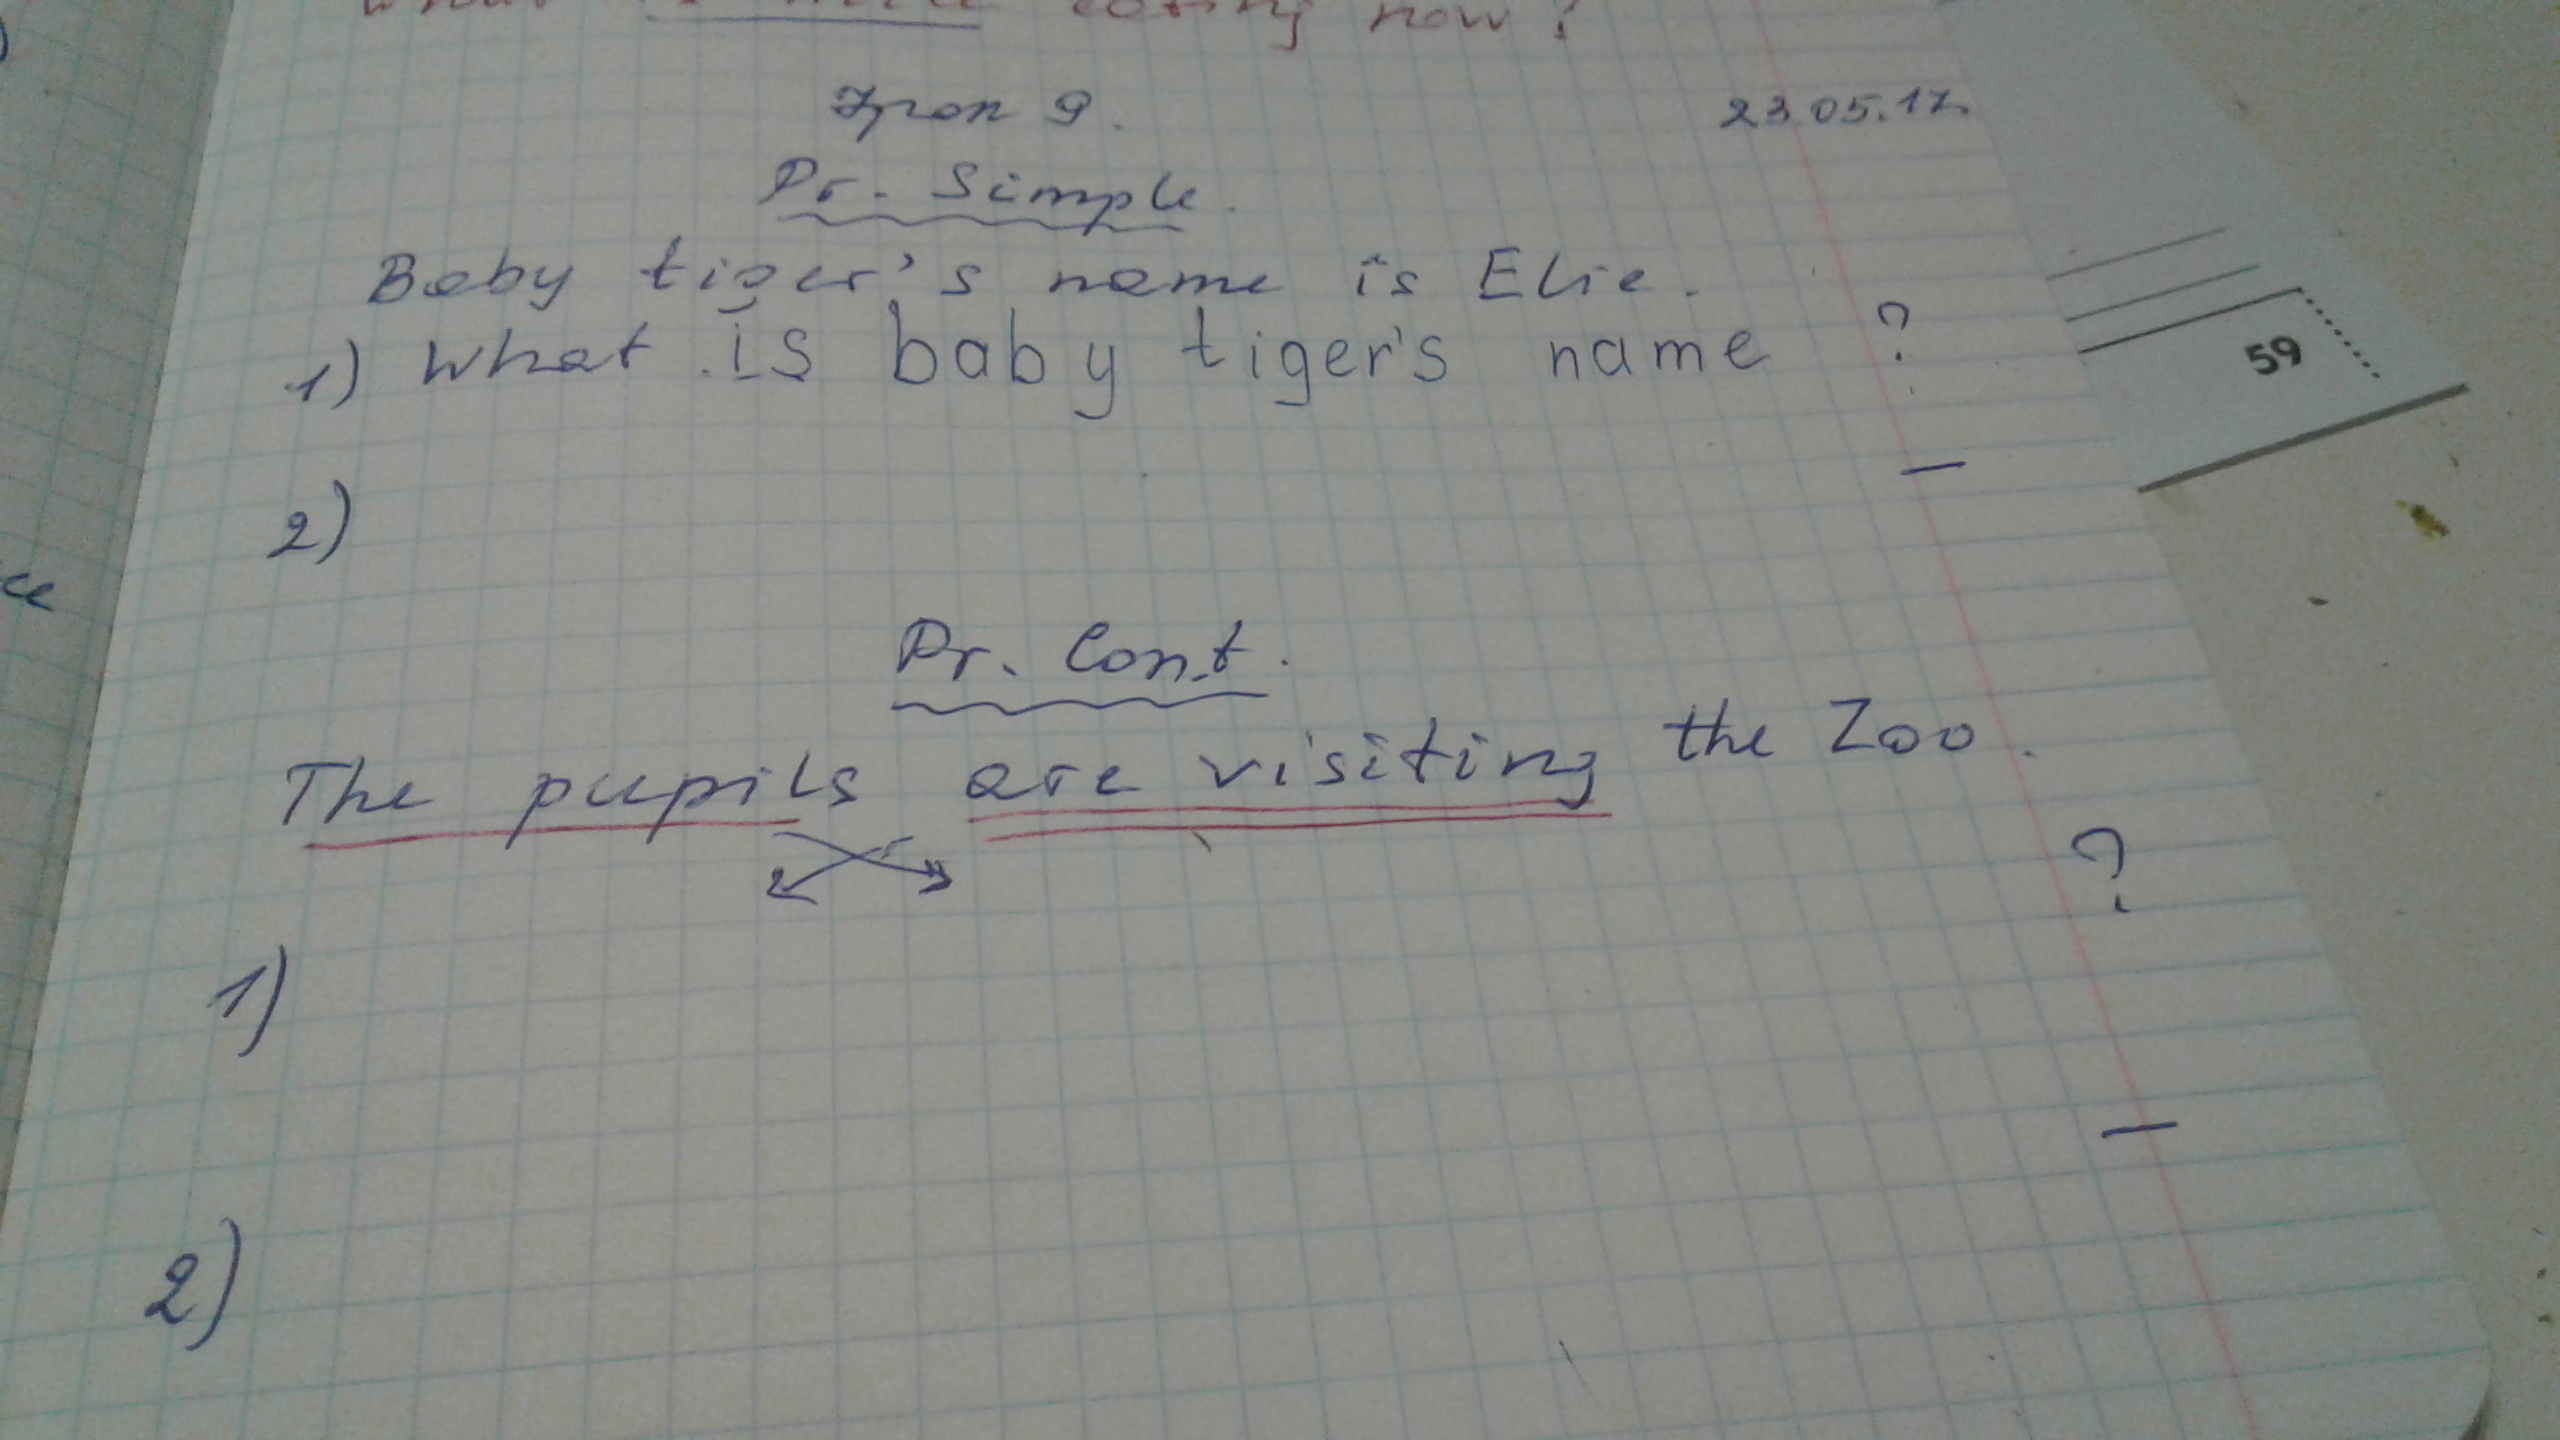 is now?
Урок 9. 23.05.17.
Pr. Simple.
Baby tiger's name is Elie.
1) What is baby tiger's name ?
–
2)
ce
Pr. Cont.
The pupils are visiting the Zoo.
?
1)
–
2)
59